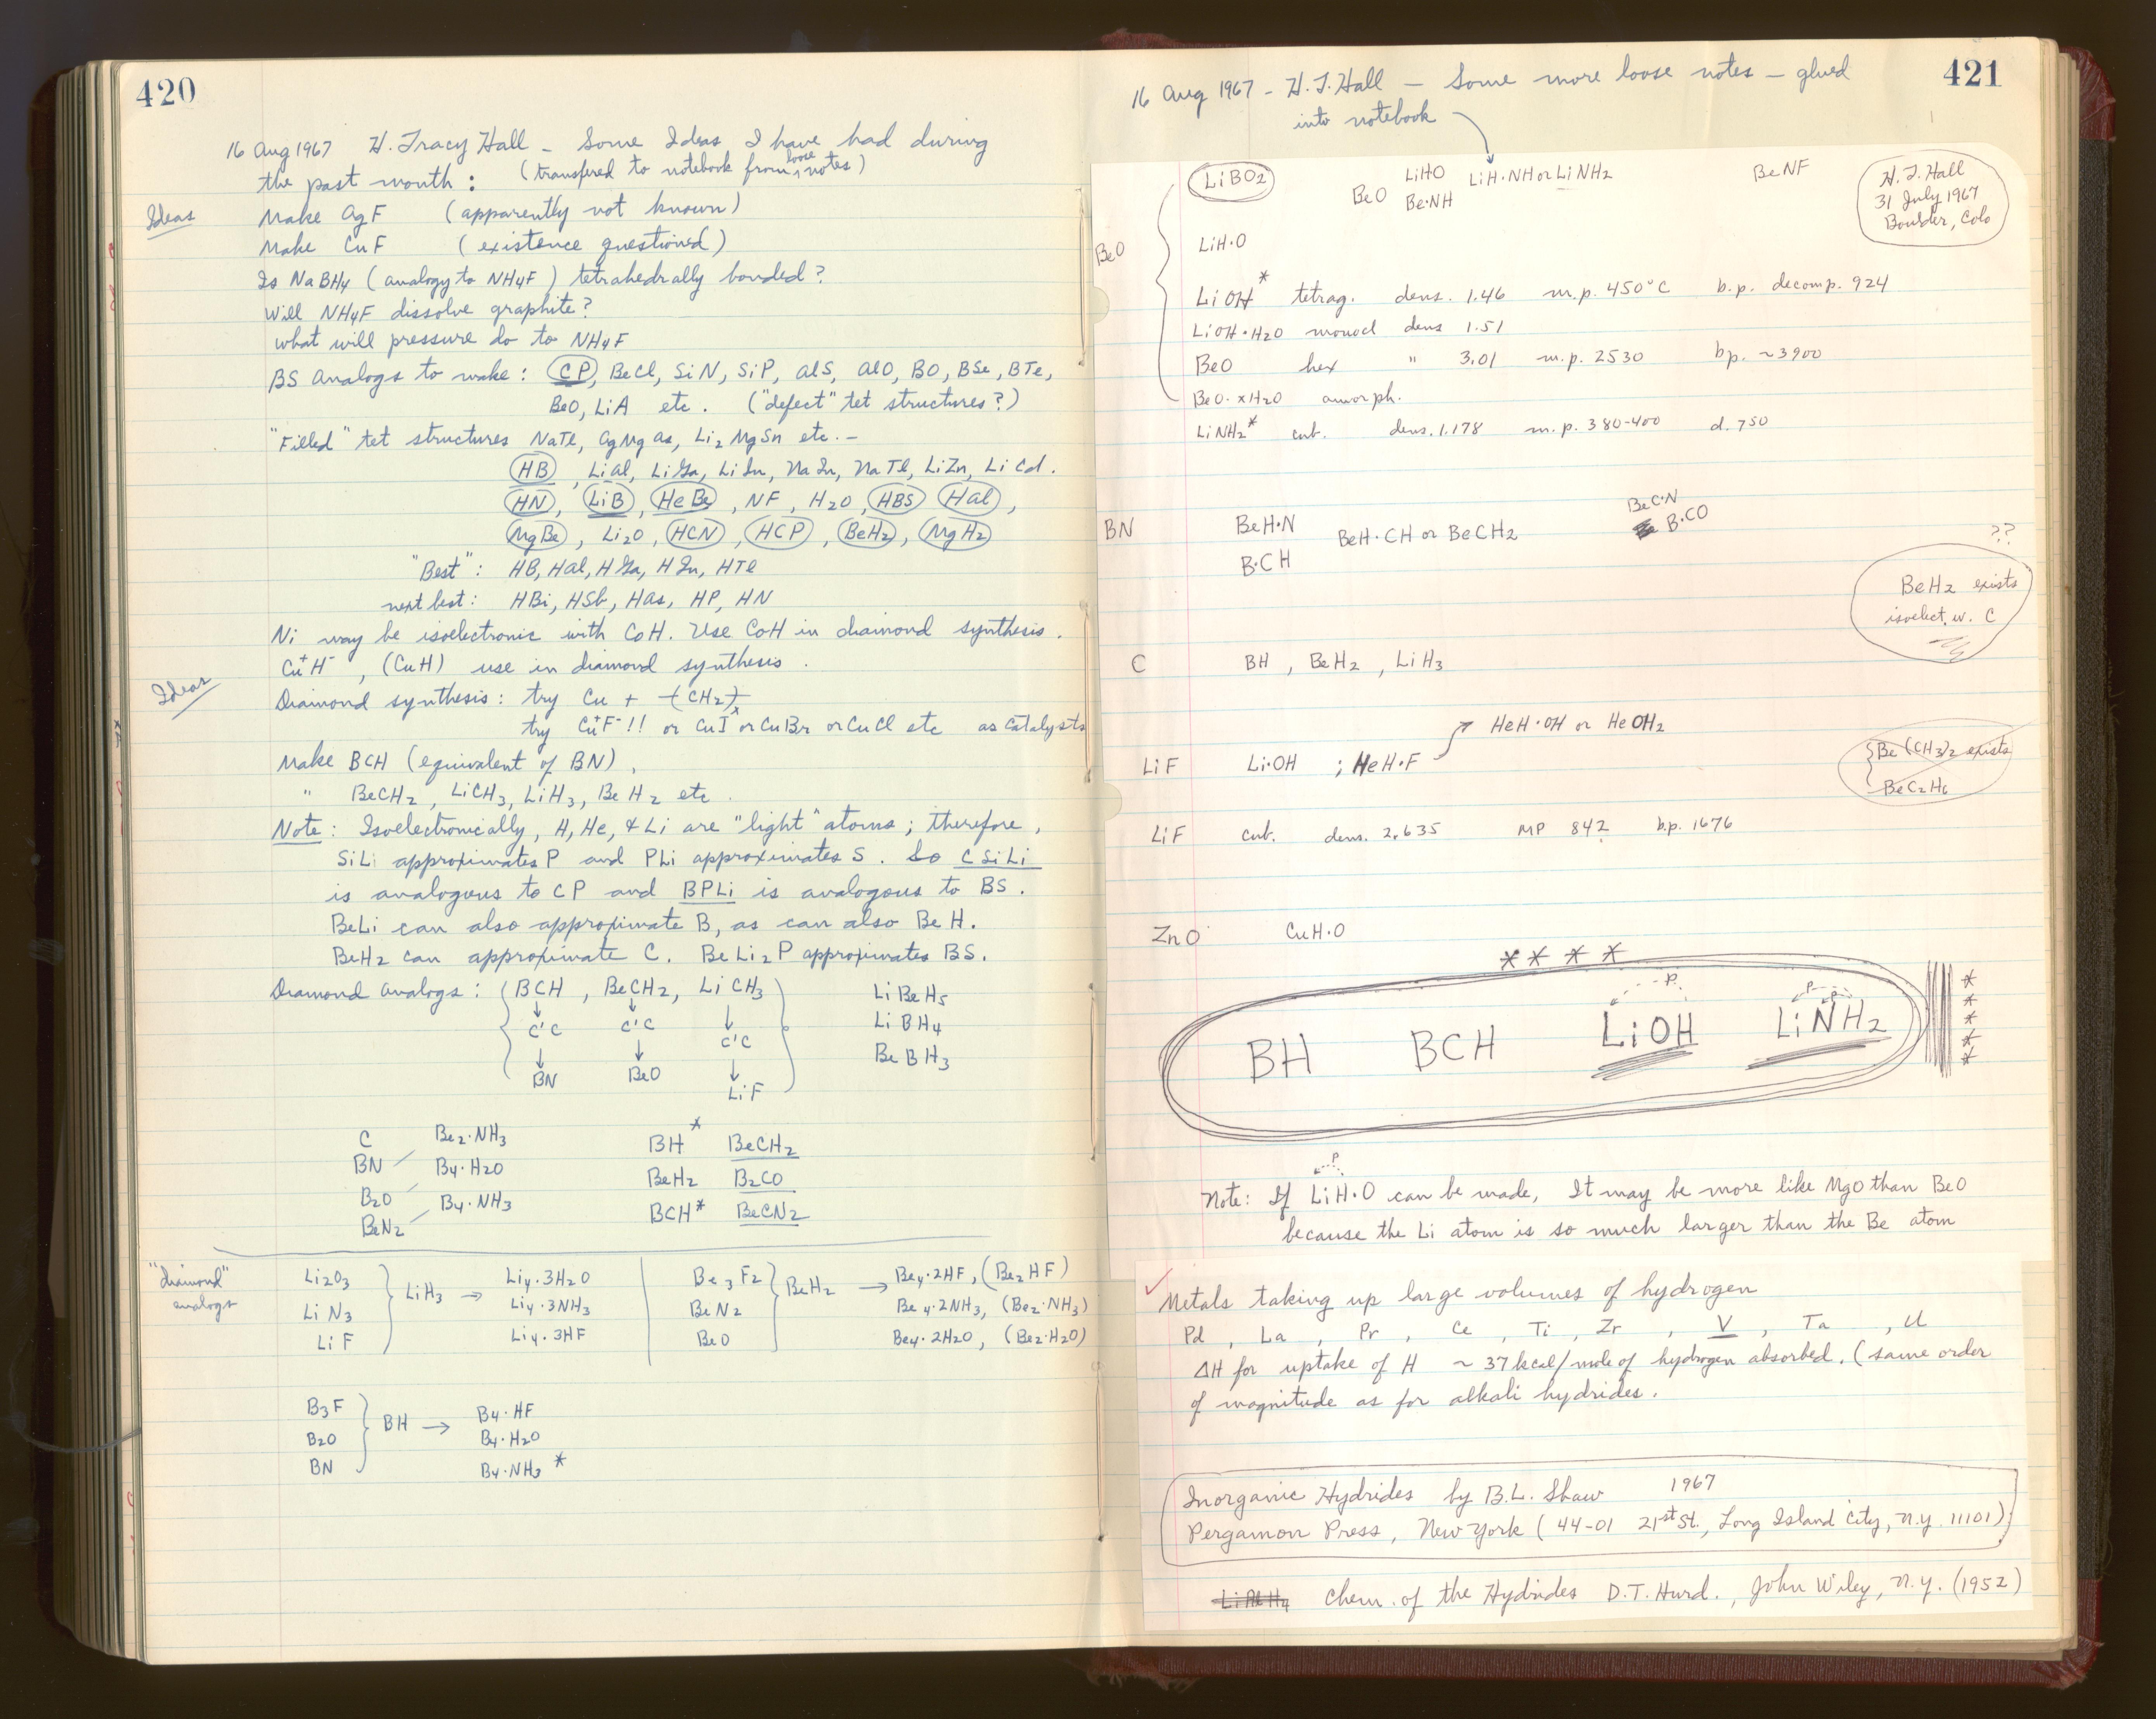 420
16 Aug 1967 H. Tracy Hall - Some Ideas I have had during
the past month : (transfered to notebook from loose notes)
Ideas
Make AgF (apparently not known)
Make CuF (existence questioned)
Is NaBH4 (analogy to NH4F) tetrahedrally bonded?
Will NH4F dissolve graphite?
What will pressure do to NH4F
BS analogs to make : CP, BeCl, SiN, SiP, AlS, AlO, BO, BSe, BTe,
BeO, LiA etc. ("defect" tet structures?)
"Filled" tet structures NaTl, AgMgAs, Li2MgSn etc. -
HB, LiAl, LiGa, LiIn, NaIn, NaTl, LiZn, LiCd.
HN, LiB, HeBe, NF, H2O, HBS, HAl,
MgBe, Li2O, HCN, HCP, BeH2, MgH2
"Best" : HB, HAl, HGa, HIn, HTl
next best : HBi, HSb, HAs, HP, HN
Ni may be isoelectronic with CoH. Use CoH in diamond synthesis.
Cu+H-, (CuH) use in diamond synthesis.
Ideas
Diamond synthesis : try Cu + -(CH2)-x
try Cu+F- !! or CuI or CuBr or CuCl etc as catalysts
Make BCH (equivalent of BN),
" BeCH2, LiCH3, LiH3, BeH2 etc.
Note : Isoelectronically, H, He, & Li are "light" atoms ; therefore,
SiLi approximates P and PLi approximates S. So CSiLi
is analogous to CP and BPLi is analogous to BS.
BeLi can also approximate B, as can also BeH.
BeH2 can approximate C. BeLi2P approximates BS.
Diamond analogs : BCH, BeCH2, LiCH3 LiBeH5
↓ ↓ ↓ LiBH4
C'C C'C C'C BeBH3
↓ ↓ ↓
BN BeO LiF
C Be2·NH3 BH* BeCH2
BN B4·H2O BeH2 B2CO
B2O B4·NH3 BCH* BeCN2
BeN2
"diamond" analogs
Li2O3 LiH3 → Li4·3H2O Be3F2 BeH2 → Be4·2HF, (Be2HF)
LiN3 Li4·3NH3 BeN2 Be4·2NH3, (Be2·NH3)
LiF Li4·3HF BeO Be4·2H2O, (Be2·H2O)
B3F BH → B4·HF
B2O B4·H2O
BN B4·NH3 *
421
16 Aug 1967 - H.T. Hall - Some more loose notes - glued
into notebook
LiBO2 BeO LiHO Be·NH LiH·NH or LiNH2 BeNF
H.T. Hall
31 July 1967
Boulder, Colo
BeO LiH·O
LiOH* tetrag. dens. 1.46 m.p. 450°C b.p. decomp. 924
LiOH·H2O monocl dens 1.51
BeO hex " 3.01 m.p. 2530 bp. ~3900
BeO·xH2O amorph.
LiNH2* cub. dens. 1.178 m.p. 380-400 d. 750
BN BeH·N BeH·CH or BeCH2 BeC·N
B·CO
B·CH
??
BeH2 exists
isoelect. w. C
C BH, BeH2, LiH3
HeH·OH or HeOH2
LiF Li·OH ; HeH·F
Be(CH3)2 exists
BeC2H6
LiF cub. dens. 2.635 MP 842 b.p. 1676
ZnO CuH·O
* * * *
P P P
BH BCH LiOH LiNH2
* * * * *
P
Note: If LiH·O can be made, It may be more like MgO than BeO
because the Li atom is so much larger than the Be atom
✓
Metals taking up large volumes of hydrogen
Pd, La, Pr, Ce, Ti, Zr, V, Ta, U
ΔH for uptake of H ~ 37 kcal/mole of hydrogen absorbed. (same order
of magnitude as for alkali hydrides.
Inorganic Hydrides by B.L. Shaw 1967
Pergamon Press, New York (44-01 21st St., Long Island City, N.Y. 11101)
LiAlH4 Chem. of the Hydrides D.T. Hurd., John Wiley, N.Y. (1952)